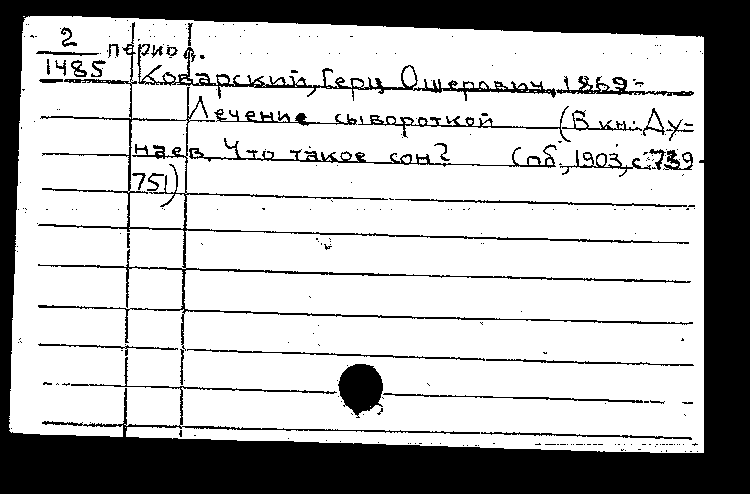 2 период.
1485 Коварский, Герц Ошерович, 1869-
Лечение сывороткой (В кн.: Ду-
наев. Что такое сон? Спб., 1903, с. 739-
751)